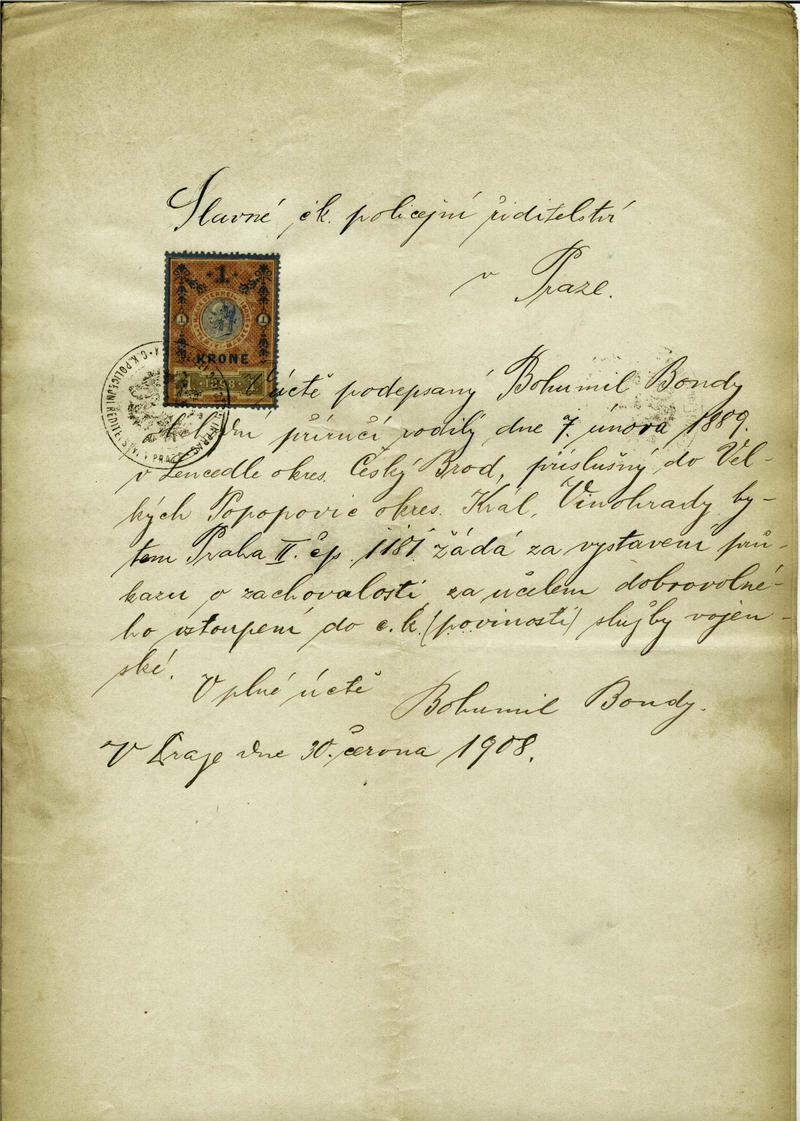 Slavné c.k. policejní ředitelství
v Praze.
1
KRONE
1898
C.K. POLICEJNÍ ŘEDITELSTVÍ V PRAZE
účtě podepsaný Bohumil Bondy
příručí rodilý dne 7. února 1889.
v Lencedle okres. Český Brod, příslušný do Vel-
kých Popopovic okres. Král. Vinohrady by-
tem Praha II. čp. 1181 žádá za vystavení prů-
kazu o zachovalosti za účelem dobrovolné-
ho vstoupení do c.k. (povinosti) služby vojen-
ské.
V plné úctě
Bohumil Bondy.
V Praze dne 30. června 1908.